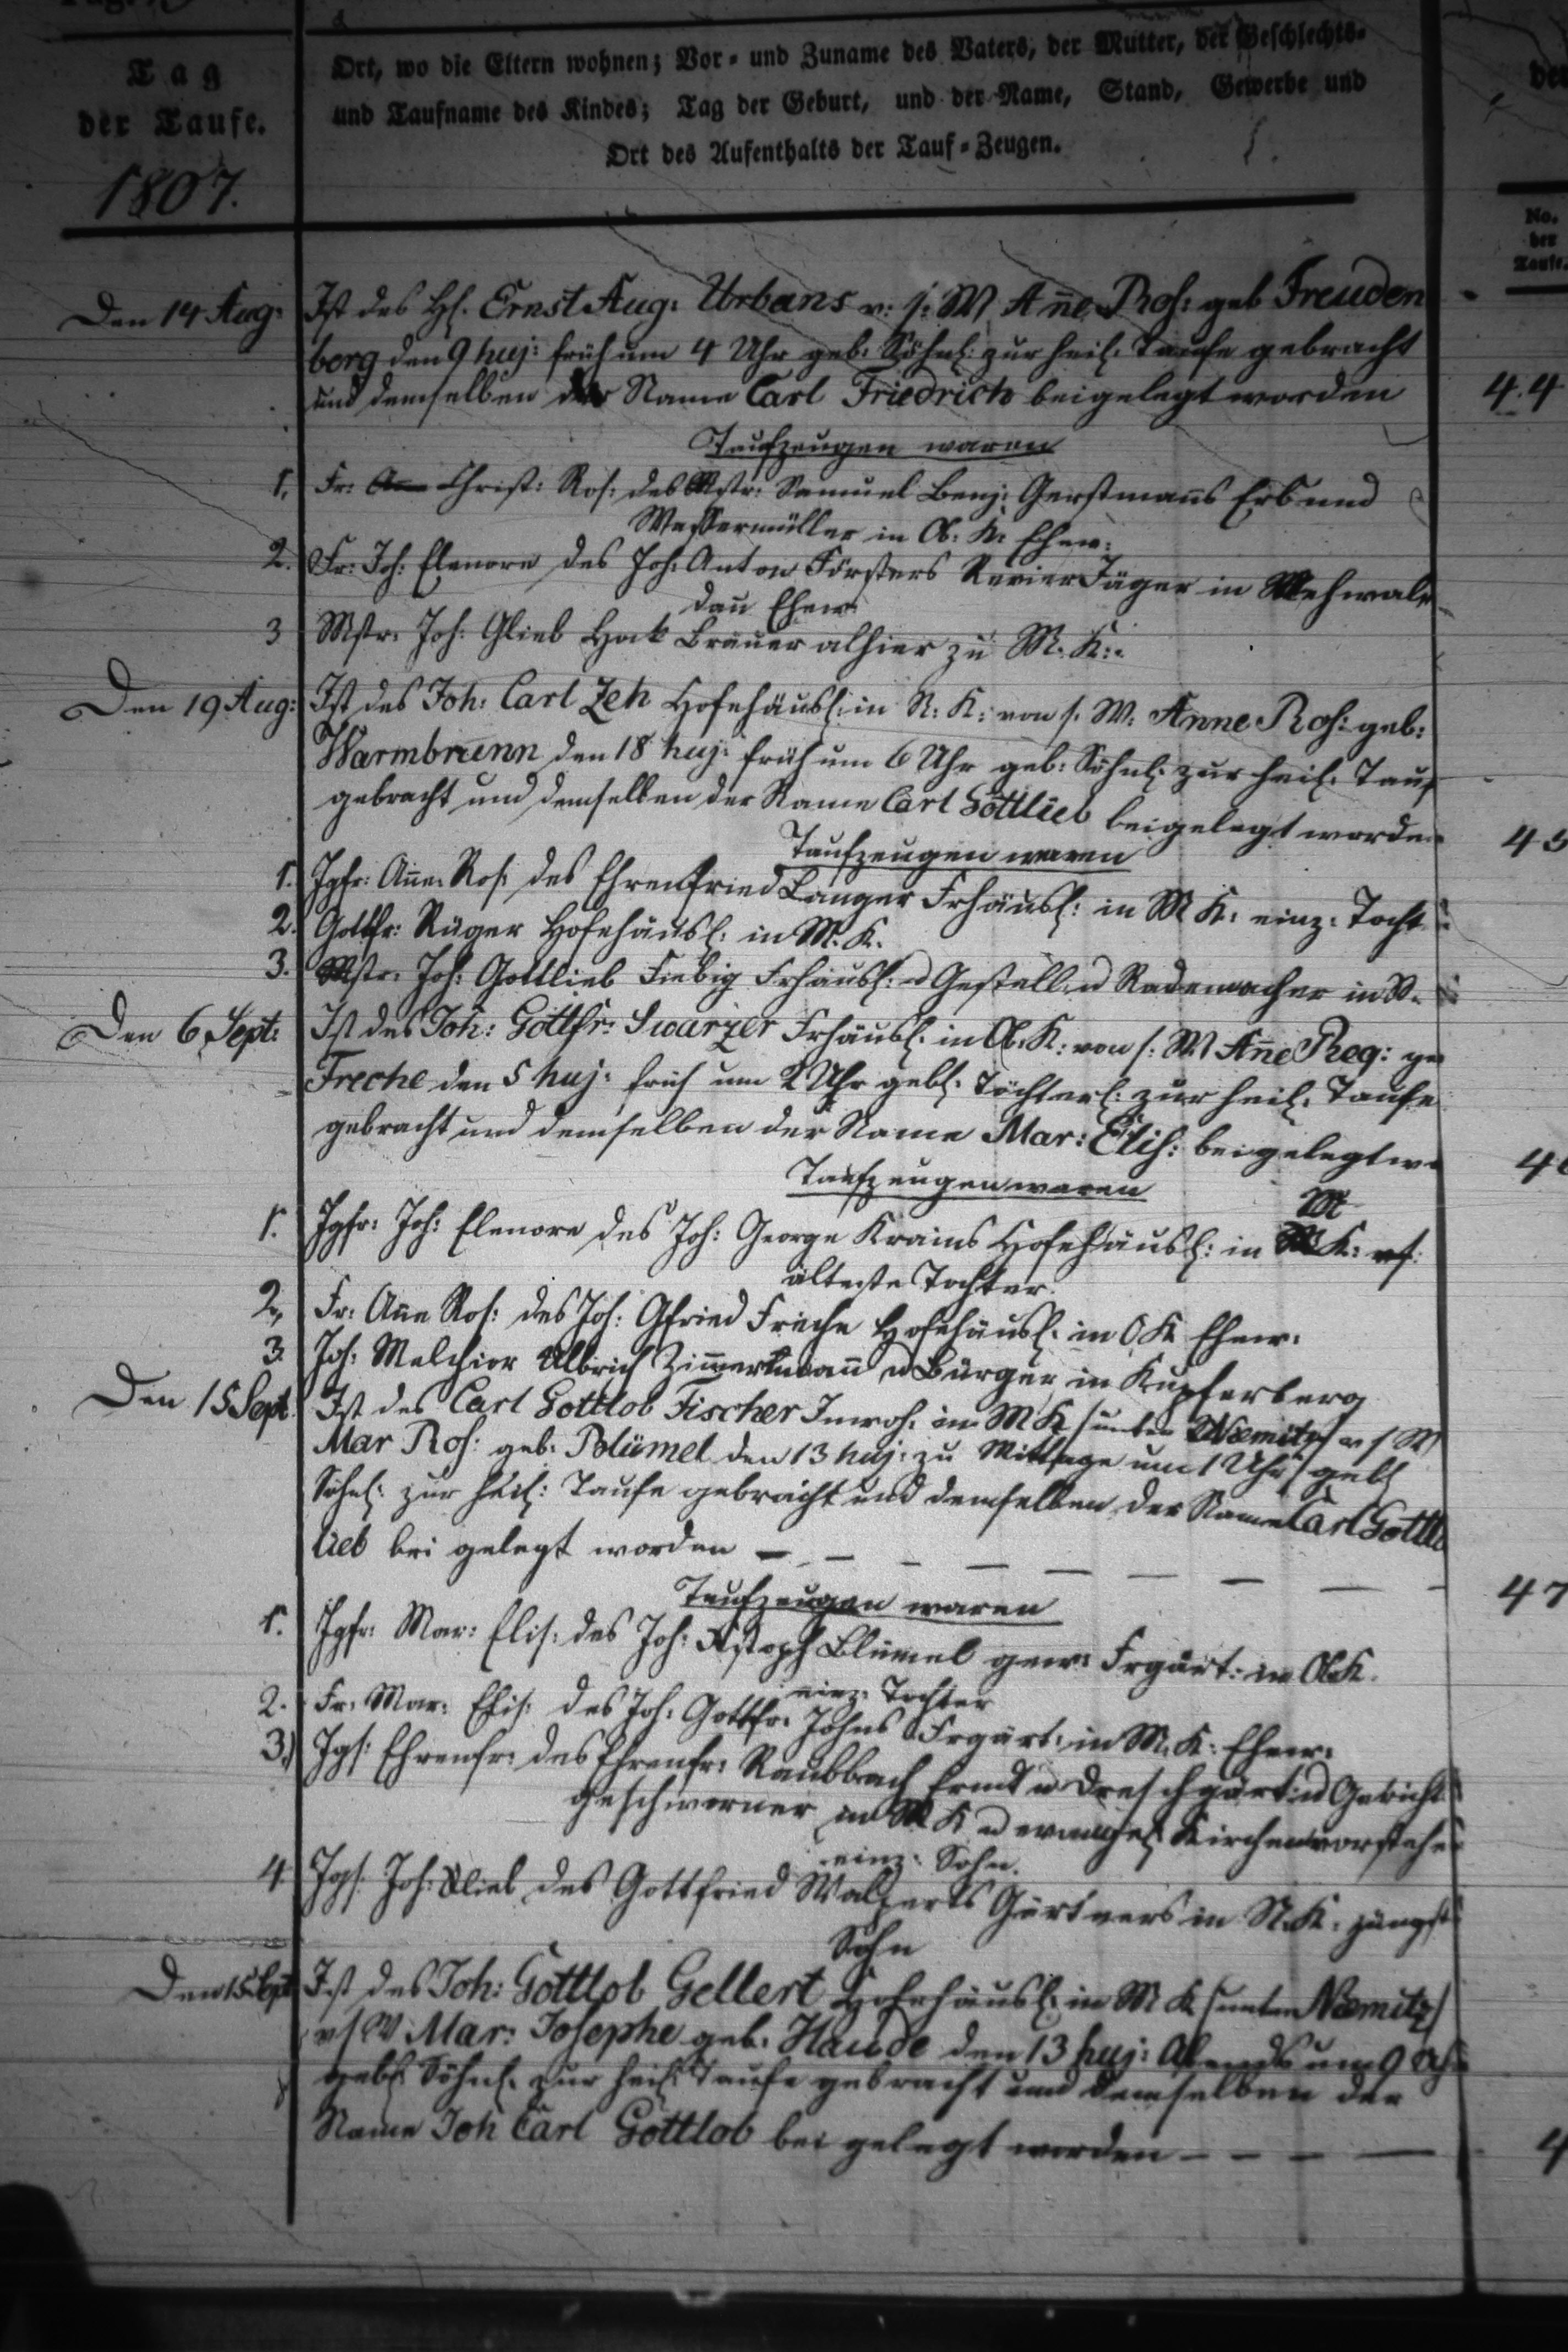 Tag
der Taufe.
1807.
Ort, wo die Eltern wohnen; Vor- und Zuname des Vaters, der Mutter, der Geschlechts-
und Taufname des Kindes; Tag der Geburt, und der Name, Stand, Gewerbe und
Ort des Aufenthalts der Tauf-Zeugen.
No.
der
Taufe.
Den 14 Aug: Ist des H. Ernst Aug: Urbans v: s: W Añe Ros: geb Freuden
berg den 9 huj: früh um 4 Uhr geb: Söhnl: zur heil: Taufe gebracht
und demselben der Name Carl Friedrich beigelegt worden 44
Taufzeugen waren
1. Fr: Christ: Ros: des Mstr: Samuel Benj: Gerstmañs Erb und
Wassermüller in Ob: K: Ehew:
2. Fr: Joh: Elenore des Joh: Anton Försters Revier Jäger in
dau Ehew:
3 Mstr: Joh: Glieb Hock Brauer alhier zu M: K:
Den 19 Aug: Ist des Joh: Carl Zeh Hofehäusl: in N: K: von s: W: Anne Ros: geb:
Warmbrunn den 18 huj: früh um 6 Uhr geb: Söhnl: zur heil: Tauf
gebracht und demselben der Name Carl Gottlieb beigelegt worden 45
Taufzeugen waren
1. Jgfr: Añe Ros: des Ehrenfried Langer Frhäusl: in M K: einz: Tocht
2. Gottfr: Rüger Hofehäusl: in M. K.
3. Mstr: Joh: Gottlieb Fiebig Frhäusl: u Gestell u Rademacher in
Den 6 Sept: Ist des Joh: Gottfr: Swarzer Frhäusl: in Ob: K: von s: W Añe Reg: ge
Freche den 5 huj: früh um 2 Uhr gebl: Töchterl: zur heil: Taufe
gebracht und demselben der Name Mar: Elis: beigelegt w
Taufzeugen waren
1. Jgfr: Joh: Elenore des Joh: George Krains Hofehäusl: in M K:
älteste Tochter
2, Fr: Añe Ros: des Joh: Gfried Freche Hofehäusl: in O K Ehew:
3. Joh: Melchior Ulbrich Zimmermañ u Bürger in Kupferberg
Den 15 Sept Ist des Carl Gottlob Fischer Inwoh: in M K (unter v s W
Mar Ros: geb: Blümel den 13 huj: zu Mittage um 1 Uhr gebl
Söhnl: zur heil: Taufe gebracht und demselben der Name Carl Gottl
lieb bei gelegt worden 47
Taufzeugen waren
1. Jgfr: Mar: Elis: des Joh: Xstoph Blümel gew: Frgärt: in Ob K.
einz: Tochter
2. Fr: Mar: Elis: des Joh: Gottfr: Johns Frgärt: in M. K: Ehew:
3.) Jgs: Ehrenfr: des Ehrenfr: Raubbach Ernd u Dreschgärt: u Gericht
geschworner in M K u Kirchenvorsteher
einz: Sohn.
4. Jgs: Joh: Glieb des Gottfried Walperts Gärtners in N. K: jüngst
Sohn
Den 15 Sept Ist des Joh: Gottlob Gellert Hofehäusl: in M K (unter Næmitz)
v s W Mar: Josephe geb: Haude den 13 huj: Abends um 9 Uhr
gebl: Söhnl: zur heil: Taufe gebracht und demselben der
Name Joh Carl Gottlob bei gelegt worden